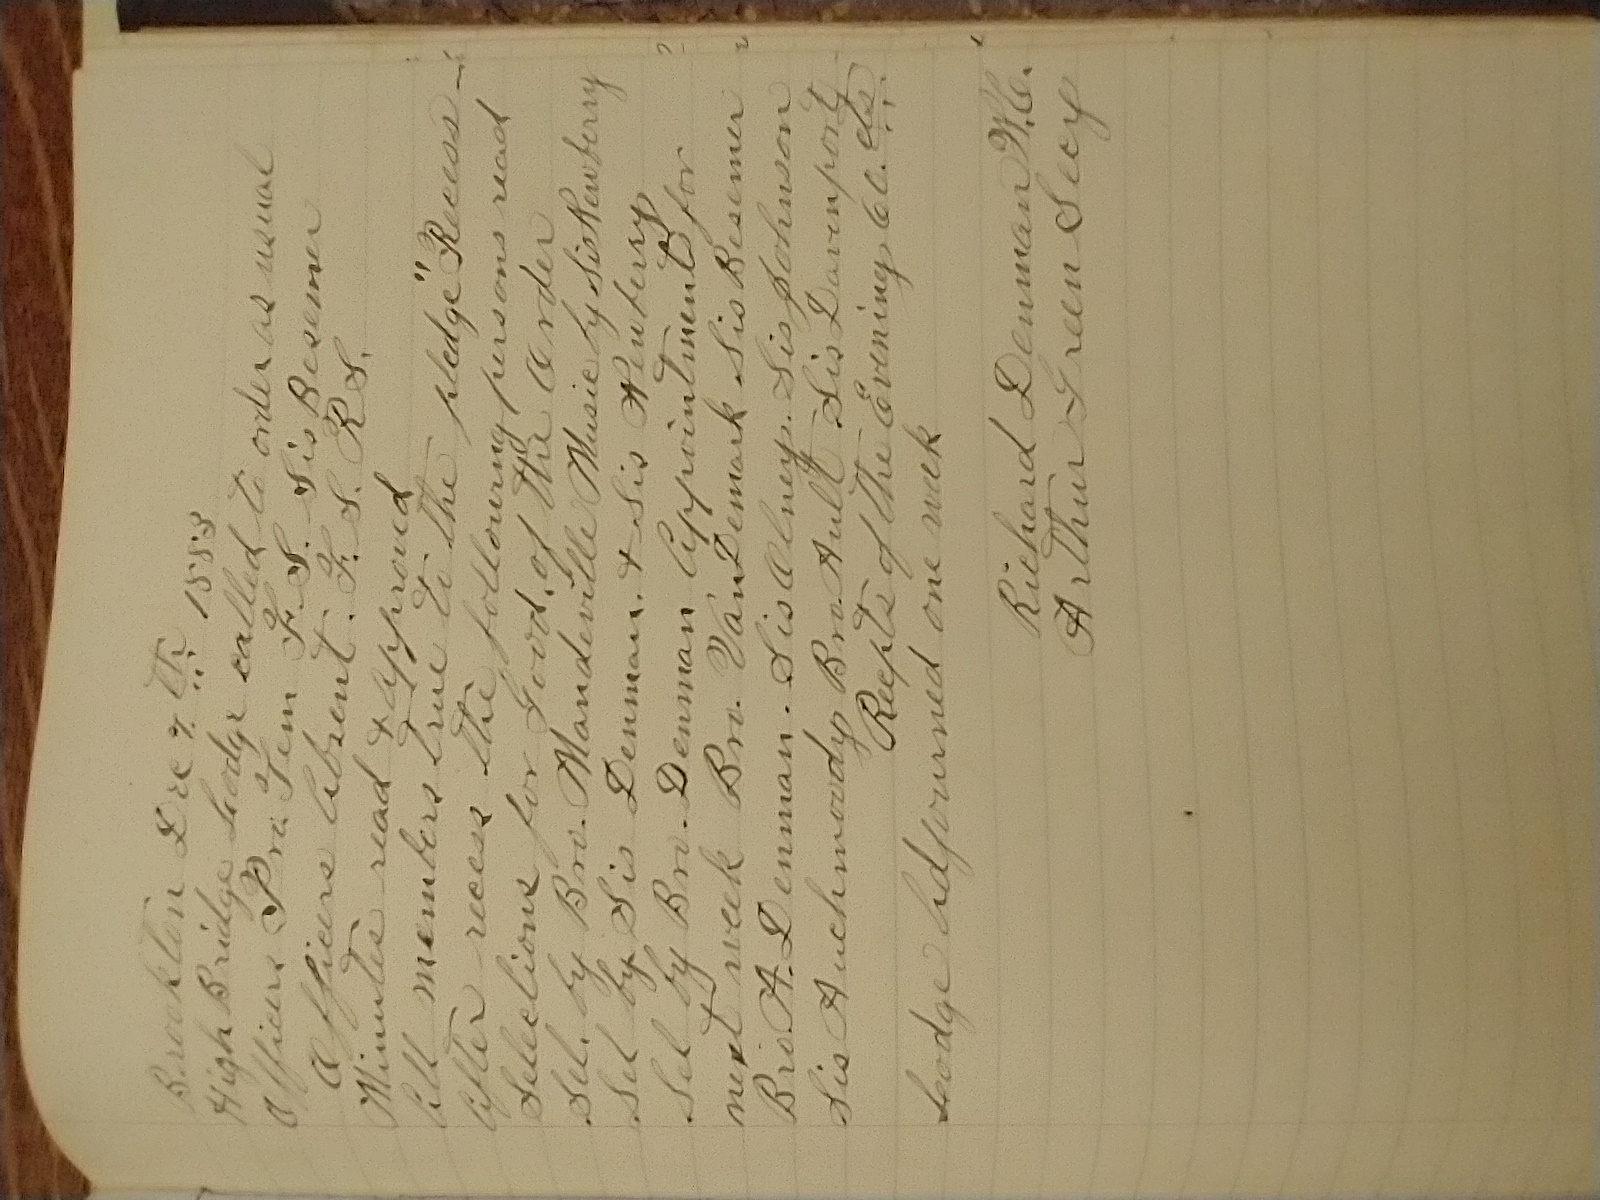 Brookton Dec 7.th 1883
High Bridge Lodge called to order as usual
Officers Pro. Tem F. S. Sis Besemer
Officers Absent. F. S. R S.
Minutes read & approved
All members true to the pledge" Recess —
After recess the following persons read
Selections for Good. of the Order
Sel. by Bro. Mandeville Music by Sis Newberry
Sel by Sis Denman. & Sis Newberry
Sel by Bro. Denman Appointments for
next week Bro. VanDemark Sis Besemer
Bro. A. Denman. Sis Olney. Sis Johnson
Sis Auchmoody Bro. Ault Sis Davenport
Recpts of the Evening 60. cts
Lodge Adjourned one week
Richard Denman W.C.
Arthur Green Secy